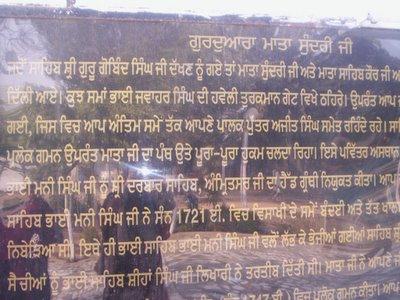 ਗੁਰਦੁਆਰਾ ਮਾਤਾ ਸੁੰਦਰੀ ਜੀ
ਜਦੋਂ ਸਾਹਿਬ ਸ਼੍ਰੀ ਗੁਰੂ ਗੋਬਿੰਦ ਸਿੰਘ ਜੀ ਦੱਖਣ ਨੂੰ ਗਏ ਤਾਂ ਮਾਤਾ ਸੁੰਦਰੀ ਜੀ ਅਤੇ ਮਾਤਾ ਸਾਹਿਬ ਕੌਰ ਜੀ ਆ
ਦਿੱਲੀ ਆਏ। ਕੁਝ ਸਮਾਂ ਭਾਈ ਜਵਾਹਰ ਸਿੰਘ ਦੀ ਹਵੇਲੀ ਤੁਰਕਮਾਨ ਗੇਟ ਵਿਖੇ ਠਹਿਰੇ। ਉਪਰੰਤ ਆਪ
ਗਈ, ਜਿਸ ਵਿਚ ਆਪ ਅੰਤਿਮ ਸਮੇਂ ਤੱਕ ਆਪਣੇ ਪਾਲਕ ਪੁੱਤਰ ਅਜੀਤ ਸਿੰਘ ਸਮੇਤ ਰਹਿੰਦੇ ਰਹੇ। ਸਾ
ਪ੍ਰਲੋਕ ਗਮਨ ਉਪਰੰਤ ਮਾਤਾ ਜੀ ਦਾ ਪੰਥ ਉਤੇ ਪੂਰਾ-ਪੂਰਾ ਹੁਕਮ ਚਲਦਾ ਰਿਹਾ। ਇਸੇ ਪਵਿੱਤਰ ਅਸਥਾਨ
ਭਾਈ ਮਨੀ ਸਿੰਘ ਜੀ ਨੂੰ ਸ਼੍ਰੀ ਦਰਬਾਰ ਸਾਹਿਬ, ਅੰਮ੍ਰਿਤਸਰ ਜੀ ਦਾ ਹੈੱਡ ਗ੍ਰੰਥੀ ਨਿਯੁਕਤ ਕੀਤਾ। ਆਪ
ਸਾਹਿਬ ਭਾਈ ਮਨੀ ਸਿੰਘ ਜੀ ਨੇ ਸੰਨ 1721 ਈ. ਵਿਚ ਵਿਸਾਖੀ ਦੇ ਸਮੇਂ ਬੰਦਈ ਅਤੇ ਤੱਤ ਖਾਲ
ਨਿਬੇੜਿਆ ਸੀ। ਇਥੇ ਹੀ ਭਾਈ ਸਾਹਿਬ ਭਾਈ ਮਨੀ ਸਿੰਘ ਜੀ ਵਲੋਂ ਲੱਭ ਕੇ ਭੇਜੀਆਂ ਗਈਆਂ ਸਾਹਿਬ ਸ਼੍ਰ
ਸੈ ਚੀਆਂ ਨੂੰ ਭਾਈ ਸਾਹਿਬ ਸ਼ੀਹਾਂ ਸਿੰਘ ਜੀ ਲਿਖਾਰੀ ਨੇ ਤਰਤੀਬ ਦਿੱਤੀ ਸੀ। ਮਾਤਾ ਜੀ ਨੇ ਆਪਣੇ ਜੀ
ਪ੍ਰਲੋਕ ਗਮਨ ਕੀਤਾ। ਆਪ